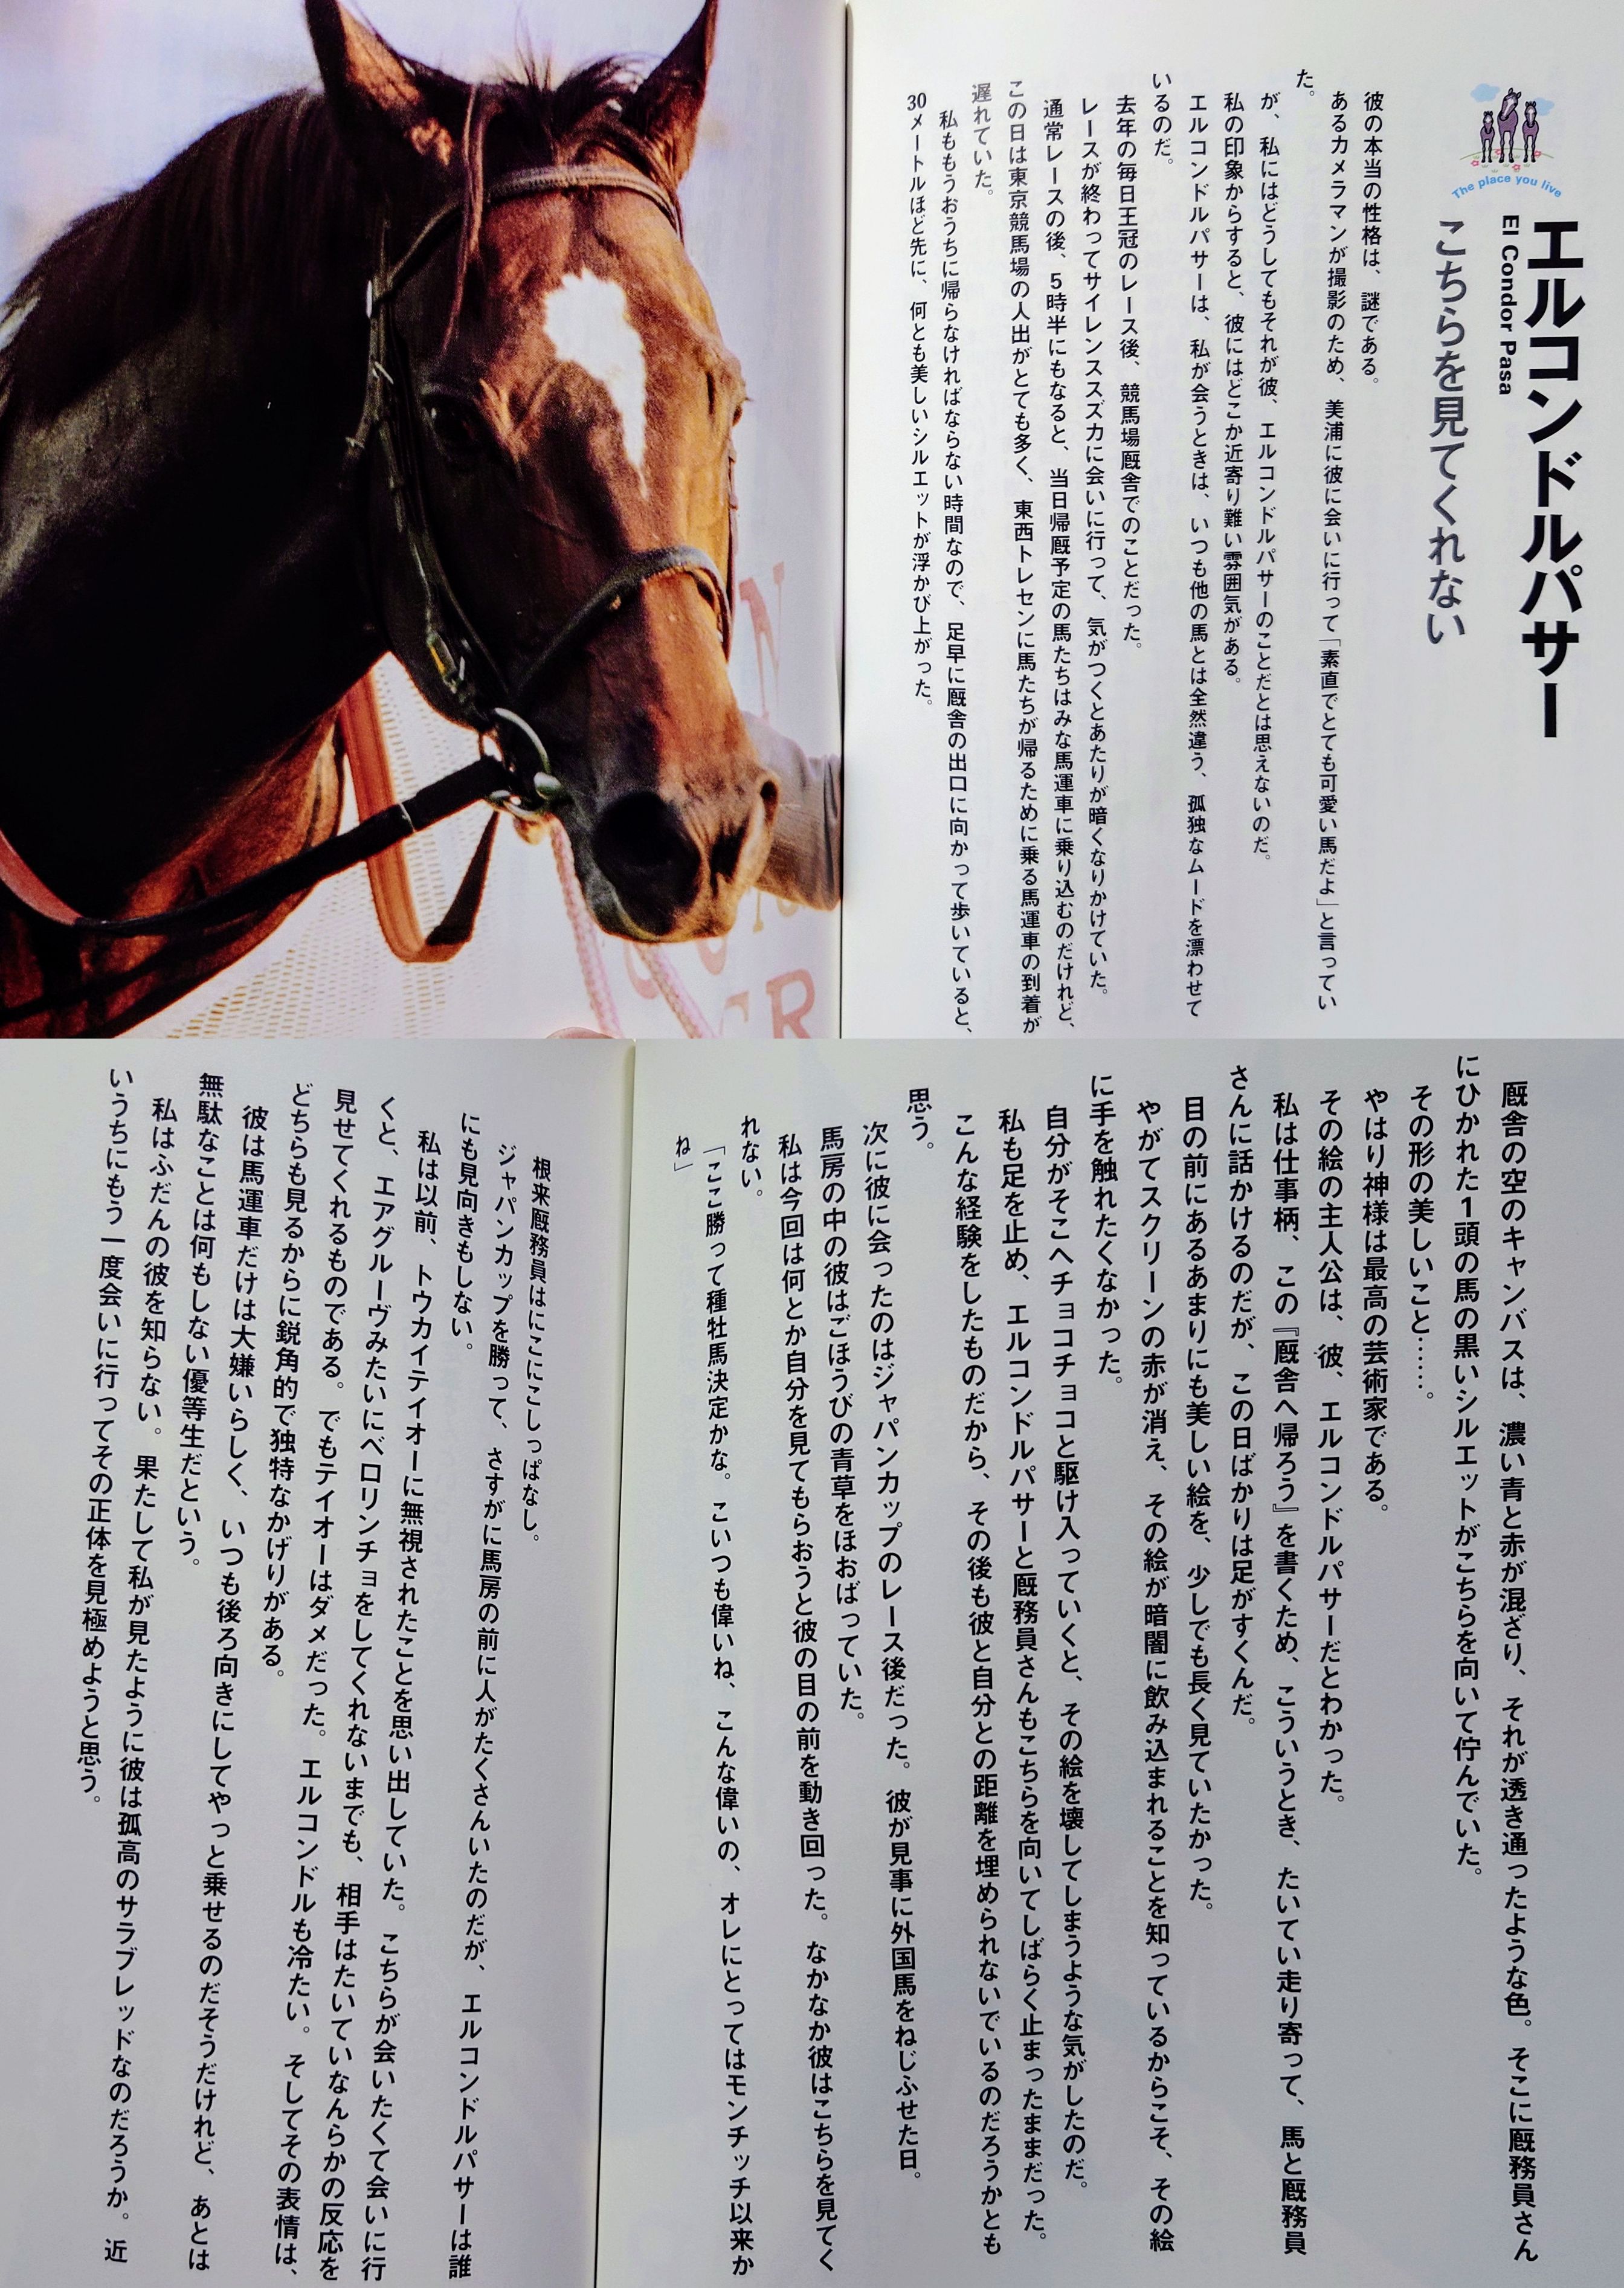 The place you live
エルコンドルパサー
El Condor Pasa
こちらを見てくれない
彼の本当の性格は、謎である。
あるカメラマンが撮影のため、美浦に彼に会いに行って「素直でとても可愛い馬だよ」と言ってい
た。
が、私にはどうしてもそれが彼、エルコンドルパサーのことだとは思えないのだ。
私の印象からすると、彼にはどこか近寄り難い雰囲気がある。
エルコンドルパサーは、私が会うときは、いつも他の馬とは全然違う、孤独なムードを漂わせて
いるのだ。
去年の毎日王冠のレース後、競馬場厩舎でのことだった。
レースが終わってサイレンススズカに会いに行って、気がつくとあたりが暗くなりかけていた。
通常レースの後、5時半にもなると、当日帰厩予定の馬たちはみな馬運車に乗り込むのだけれど、
この日は東京競馬場の人出がとても多く、東西トレセンに馬たちが帰るために乗る馬運車の到着が
遅れていた。
私ももうおうちに帰らなければならない時間なので、足早に厩舎の出口に向かって歩いていると、
30メートルほど先に、何とも美しいシルエットが浮かび上がった。
厩舎の空のキャンバスは、濃い青と赤が混ざり、それが透き通ったような色。そこに厩務員さん
にひかれた1頭の馬の黒いシルエットがこちらを向いて佇んでいた。
その形の美しいこと……。
やはり神様は最高の芸術家である。
その絵の主人公は、彼、エルコンドルパサーだとわかった。
私は仕事柄、この『厩舎へ帰ろう』を書くため、こういうとき、たいてい走り寄って、馬と厩務員
さんに話かけるのだが、この日ばかりは足がすくんだ。
目の前にあるあまりにも美しい絵を、少しでも長く見ていたかった。
やがてスクリーンの赤が消え、その絵が暗闇に飲み込まれることを知っているからこそ、その絵
に手を触れたくなかった。
自分がそこへチョコチョコと駆け入っていくと、その絵を壊してしまうような気がしたのだ。
私も足を止め、エルコンドルパサーと厩務員さんもこちらを向いてしばらく止まったままだった。
こんな経験をしたものだから、その後も彼と自分との距離を埋められないでいるのだろうかとも
思う。
次に彼に会ったのはジャパンカップのレース後だった。彼が見事に外国馬をねじふせた日。
馬房の中の彼はごほうびの青草をほおばっていた。
私は今回は何とか自分を見てもらおうと彼の目の前を動き回った。なかなか彼はこちらを見てく
れない。
「ここ勝って種牡馬決定かな。こいつも偉いね、こんな偉いの、オレにとってはモンチッチ以来か
ね」
根来厩務員はにこにこしっぱなし。
ジャパンカップを勝って、さすがに馬房の前に人がたくさんいたのだが、エルコンドルパサーは誰
にも見向きもしない。
私は以前、トウカイテイオーに無視されたことを思い出していた。こちらが会いたくて会いに行
くと、エアグルーヴみたいにベロリンチョをしてくれないまでも、相手はたいていなんらかの反応を
見せてくれるものである。でもテイオーはダメだった。エルコンドルも冷たい。そしてその表情は、
どちらも見るからに鋭角的で独特なかげりがある。
彼は馬運車だけは大嫌いらしく、いつも後ろ向きにしてやっと乗せるのだそうだけれど、あとは
無駄なことは何もしない優等生だという。
私はふだんの彼を知らない。果たして私が見たように彼は孤高のサラブレッドなのだろうか。近
いうちにもう一度会いに行ってその正体を見極めようと思う。